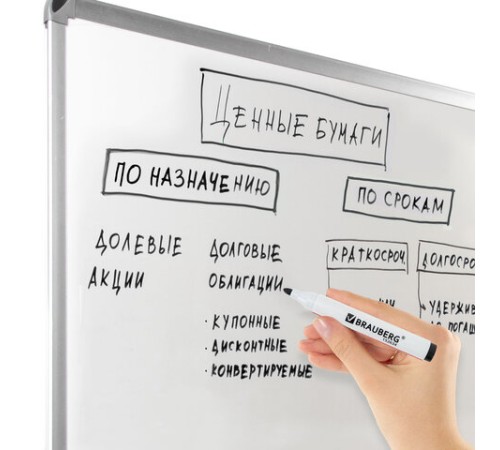 ЦЕННЫЕ БУМАГИ
ПО НАЗНАЧЕНИЮ
ПО СРОКАМ
ДОЛЕВЫЕ
АКЦИИ
ДОЛГОВЫЕ
ОБЛИГАЦИИ
· КУПОННЫЕ
· ДИСКОНТНЫЕ
· КОНВЕРТИРУЕМЫЕ
КРАТКОСРОЧ
ДОЛГОСРО
УДЕРЖИВ
ДО ПОГАШ
BRAUBERG